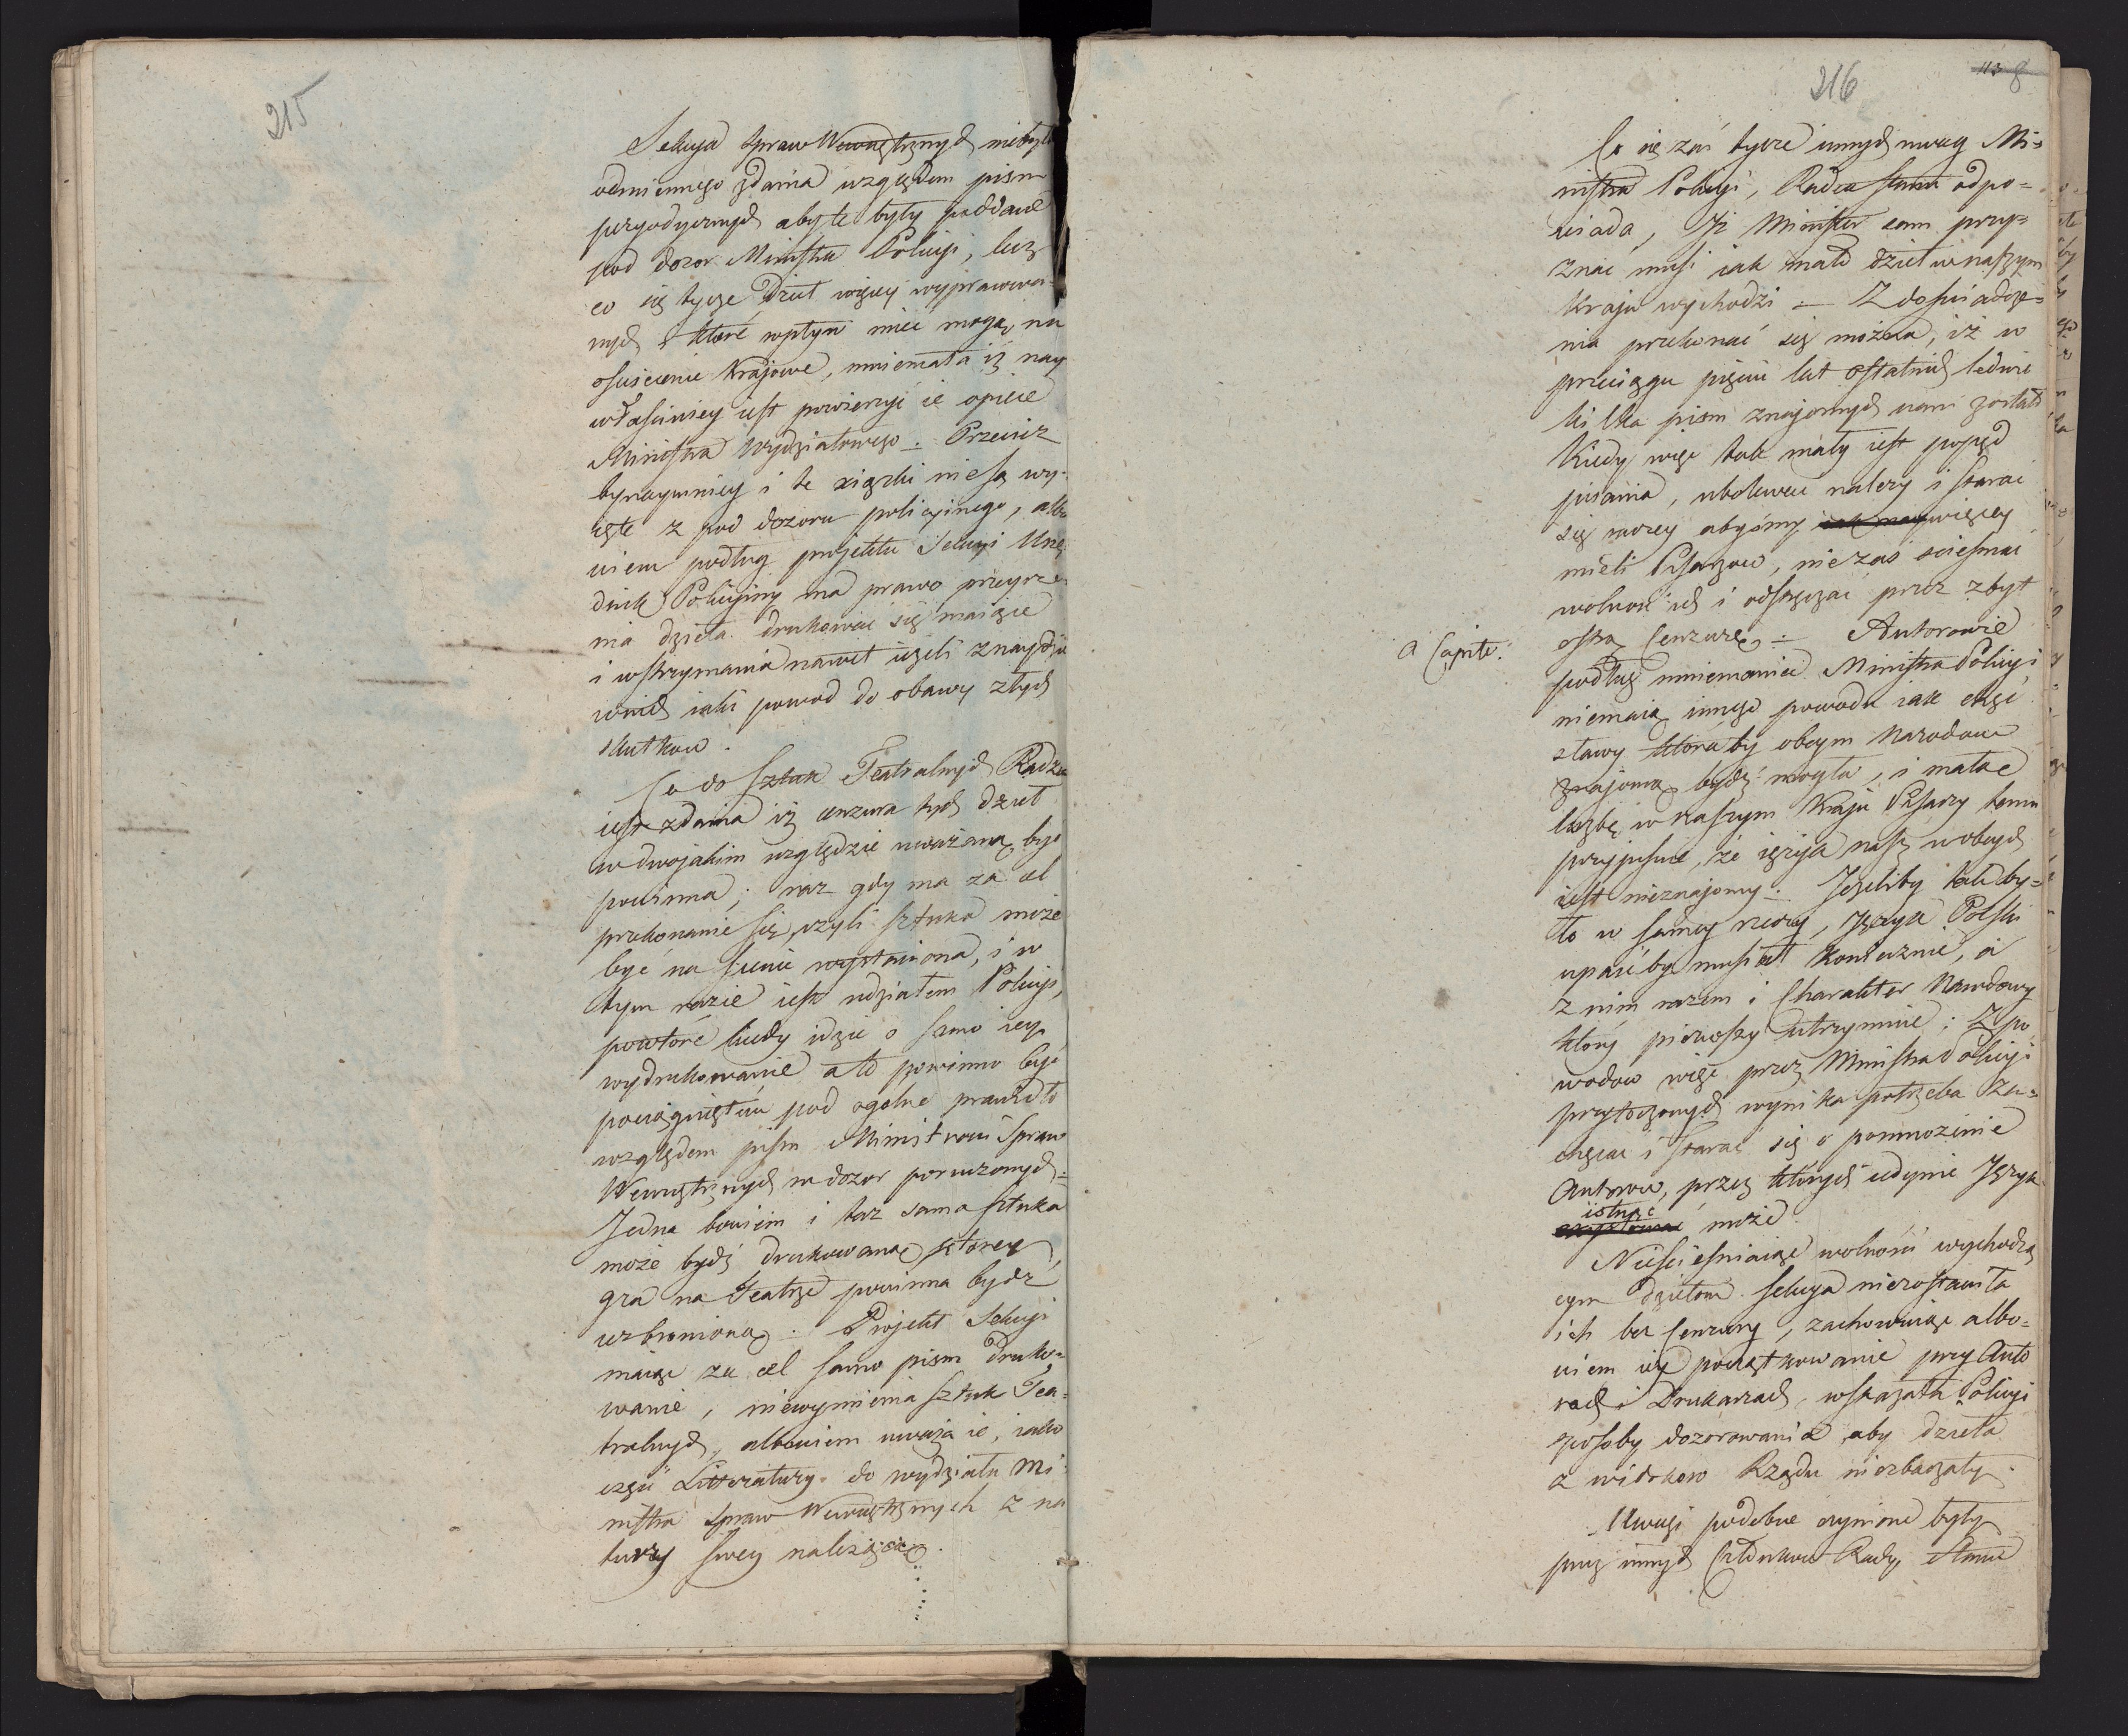 215
Sekcya Spraw Wewnętrznych niebyła
odmiennego zdania względem pism
peryodycznych aby te były poddane
pod dozor Ministra Policyi, lecz
co się tycze Dzieł więcey wypracowa=
nych które wpływ mieć mogą na
oświecenie Krajowe, mniemała iż nay
właściwiey iest powierzyć ie opiece
Ministra Wydziałowego. Przecież
bynaymniey i te xiążki nie są wy=
ięte z pod dozoru policyinego, albo
wiem podług projektu Sekcyi Urzę
dnik Policyiny ma prawo przeyrze
nia dzieła drukować się maiące
i wstrzymania nawet ieżeli znaydzie
w nich iaki powod do obawy złych
skutkow.
Co do Sztuk Teatralnych Radzca
iest zdania iż cenzura tych dzieł
w dwojakim względzie uważaną być
powinna; raz gdy ma za cel
przekonanie się, czyli sztuka może
być na scenie wystawiona, i w
tym razie iest udziałem Policyi,
powtóre kiedy idzie o samo iey
wydrukowanie a to powinno być
pociągnięte pod ogólne prawidło
względem pism Ministrowi Spraw
Wewnętrznych w dozor poruczonych.
Jedna bowiem i taż sama sztuka
może bydź drukowaną, ktorey
gra na Teatrze powinna bydź
wzbronioną. Projekt Sekcyi
maiąc za cel samo pism druko=
wanie, niewymienia Sztuk Tea=
tralnych, albowiem uważa ie, iako
część Litteratury do wydziału Mi=
nistra Spraw Wewnętrznych z na
tury swey należącą.
216
113 8
Co się zaś tycze innych uwag Mi=
nistra Policyi, Radca Stanu odpo=
wiada, Iż Minister sam przy=
znać musi iak mało dzieł w naszym
kraju wychodzi – Z doświadcze=
nia przekonać się można, iż w
przeciągu pięciu lat ostatnich ledwie
kilka pism znajomych nam zostało
Kiedy więc tak mały iest popęd
pisania, ubolewać należy i starać
się raczey abyśmy iak nay więcey
mieli Pisarzow, nie zaś ścieśniać
wolność ich i odstręczać przez zbyt
ostrą Cenzurę. – Autorowie
a Capite.
podług mniemania Ministra Policyi
niemaią innego powodu iak chęć
sławy któraby obcym Narodom
znajomą bydź mogła, i małą
liczbę w naszym Kraju Pisarzy temu
przypisuie, że ięzyk nasz u obcych
iest nieznajomy. Jeżeliby tak by=
ło w samey rzeczy, Jęzeyk Polski
upaśćby musiał koniecznie, a
z nim razem i Charakter Narodowy
który pierwszy utrzymuie; Z po
wodow więc przez Ministra Policyi
przytoczonych wynika potrzeba za=
chęcać i starać się o pomnożenie
Autorow, przez których iedynie Język
istnąć
może.
Nieścieśniaiąc wolności wychodzą
cym dziełom Sekcya niezostawiła
ich bez Cenzury, zachowuiąc albo=
wiem iey początkowanie przy Auto
rach i Drukarzach, wskazała Policyi
sposoby dozorowania aby dzieła
z widokow Rządu niezbaczały.
Uwagi podobne czynione były
przez innych Członkow Rady Stanu